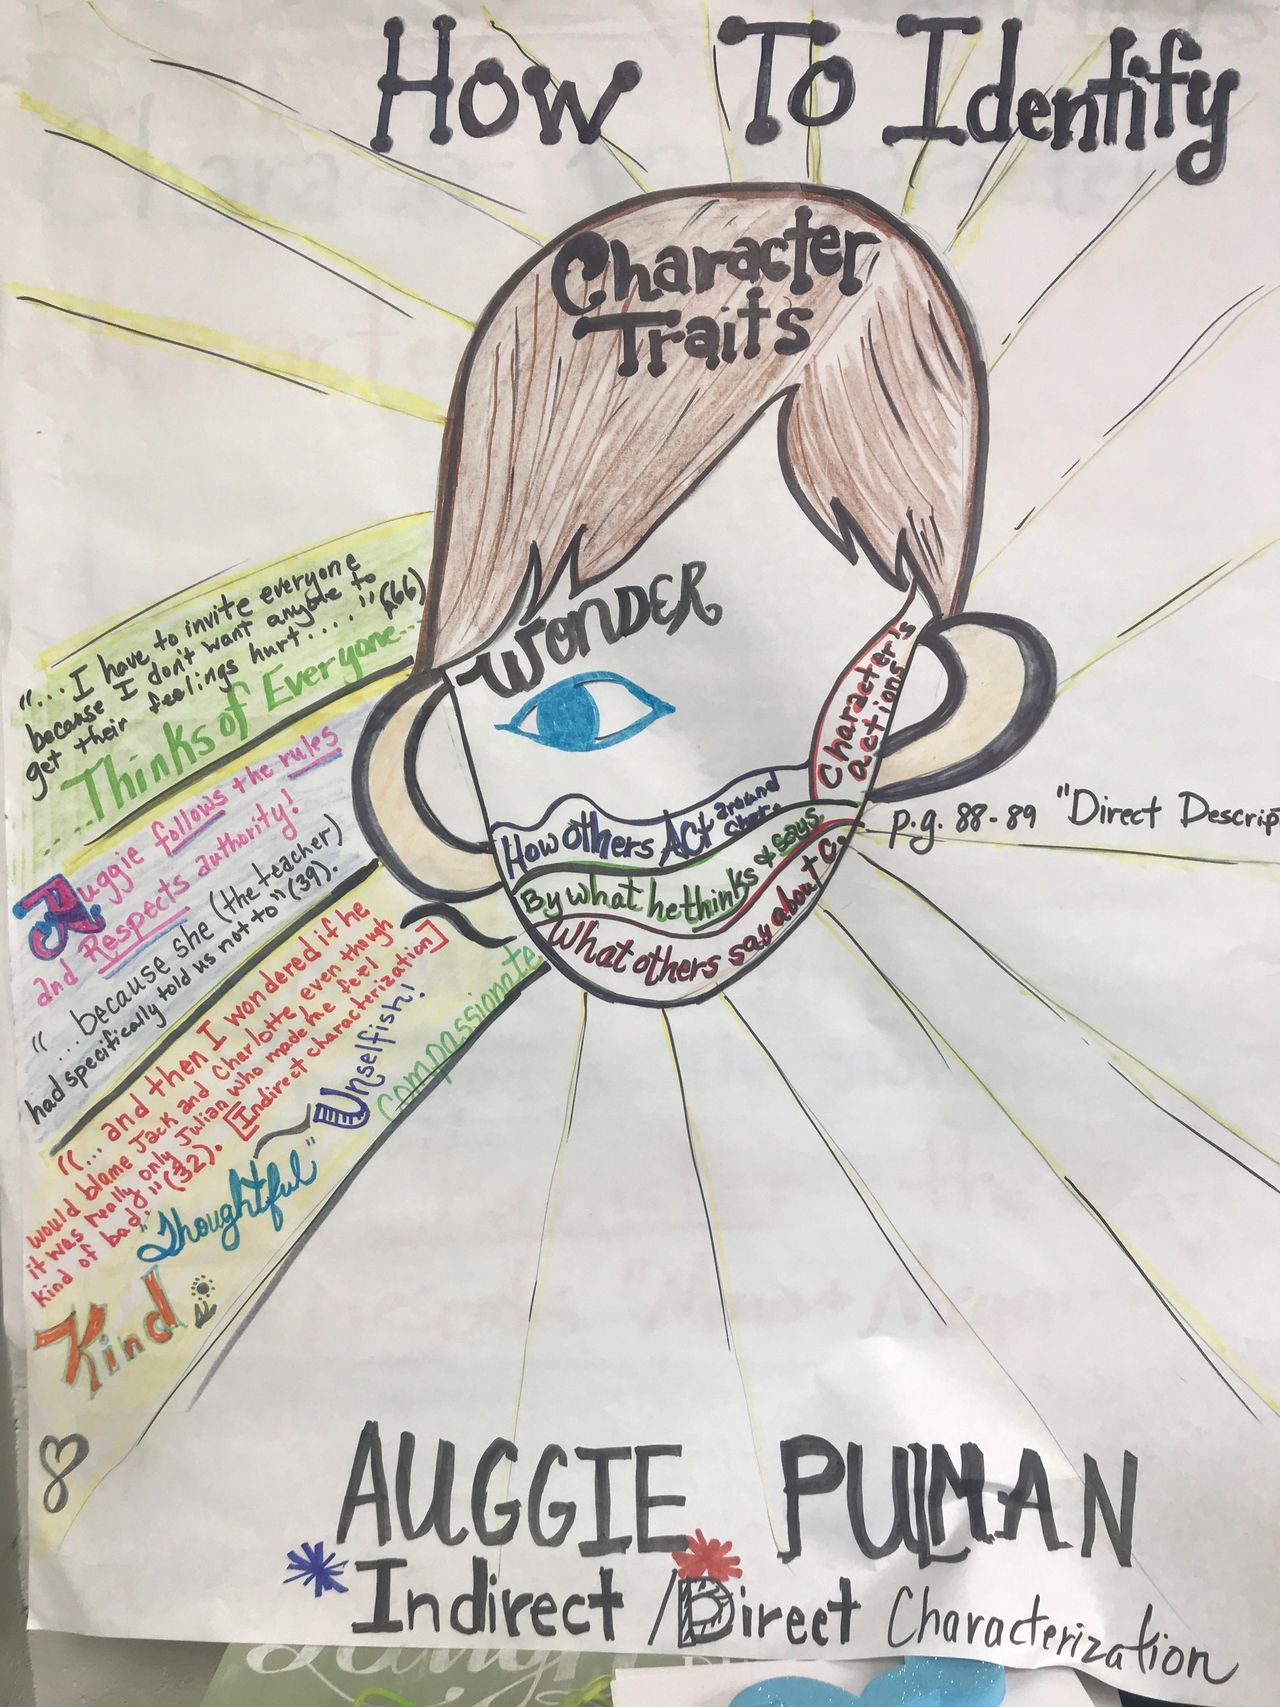 How To Identify
Character
Traits
WONDER
Character's
actions
How others ACT around
char.
By what he thinks & says
What others say about C.
p.g. 88-89 "Direct Descrip
"...I have to invite everyone
because I don't want anyone to
get their feelings hurt...." (66)
Thinks of Everyone...
Auggie follows the rules
and Respects authority!
"...because she (the teacher)
had specifically told us not to" (39).
"...and then I wondered if he
would blame Jack and Charlotte even though
it was really only Julian who made me feel
kind of bad;" (32). [Indirect characterization]
"Thoughtful"
Unselfish!
Compassionate
Kind
AUGGIE PULMAN
Indirect / Direct Characterization